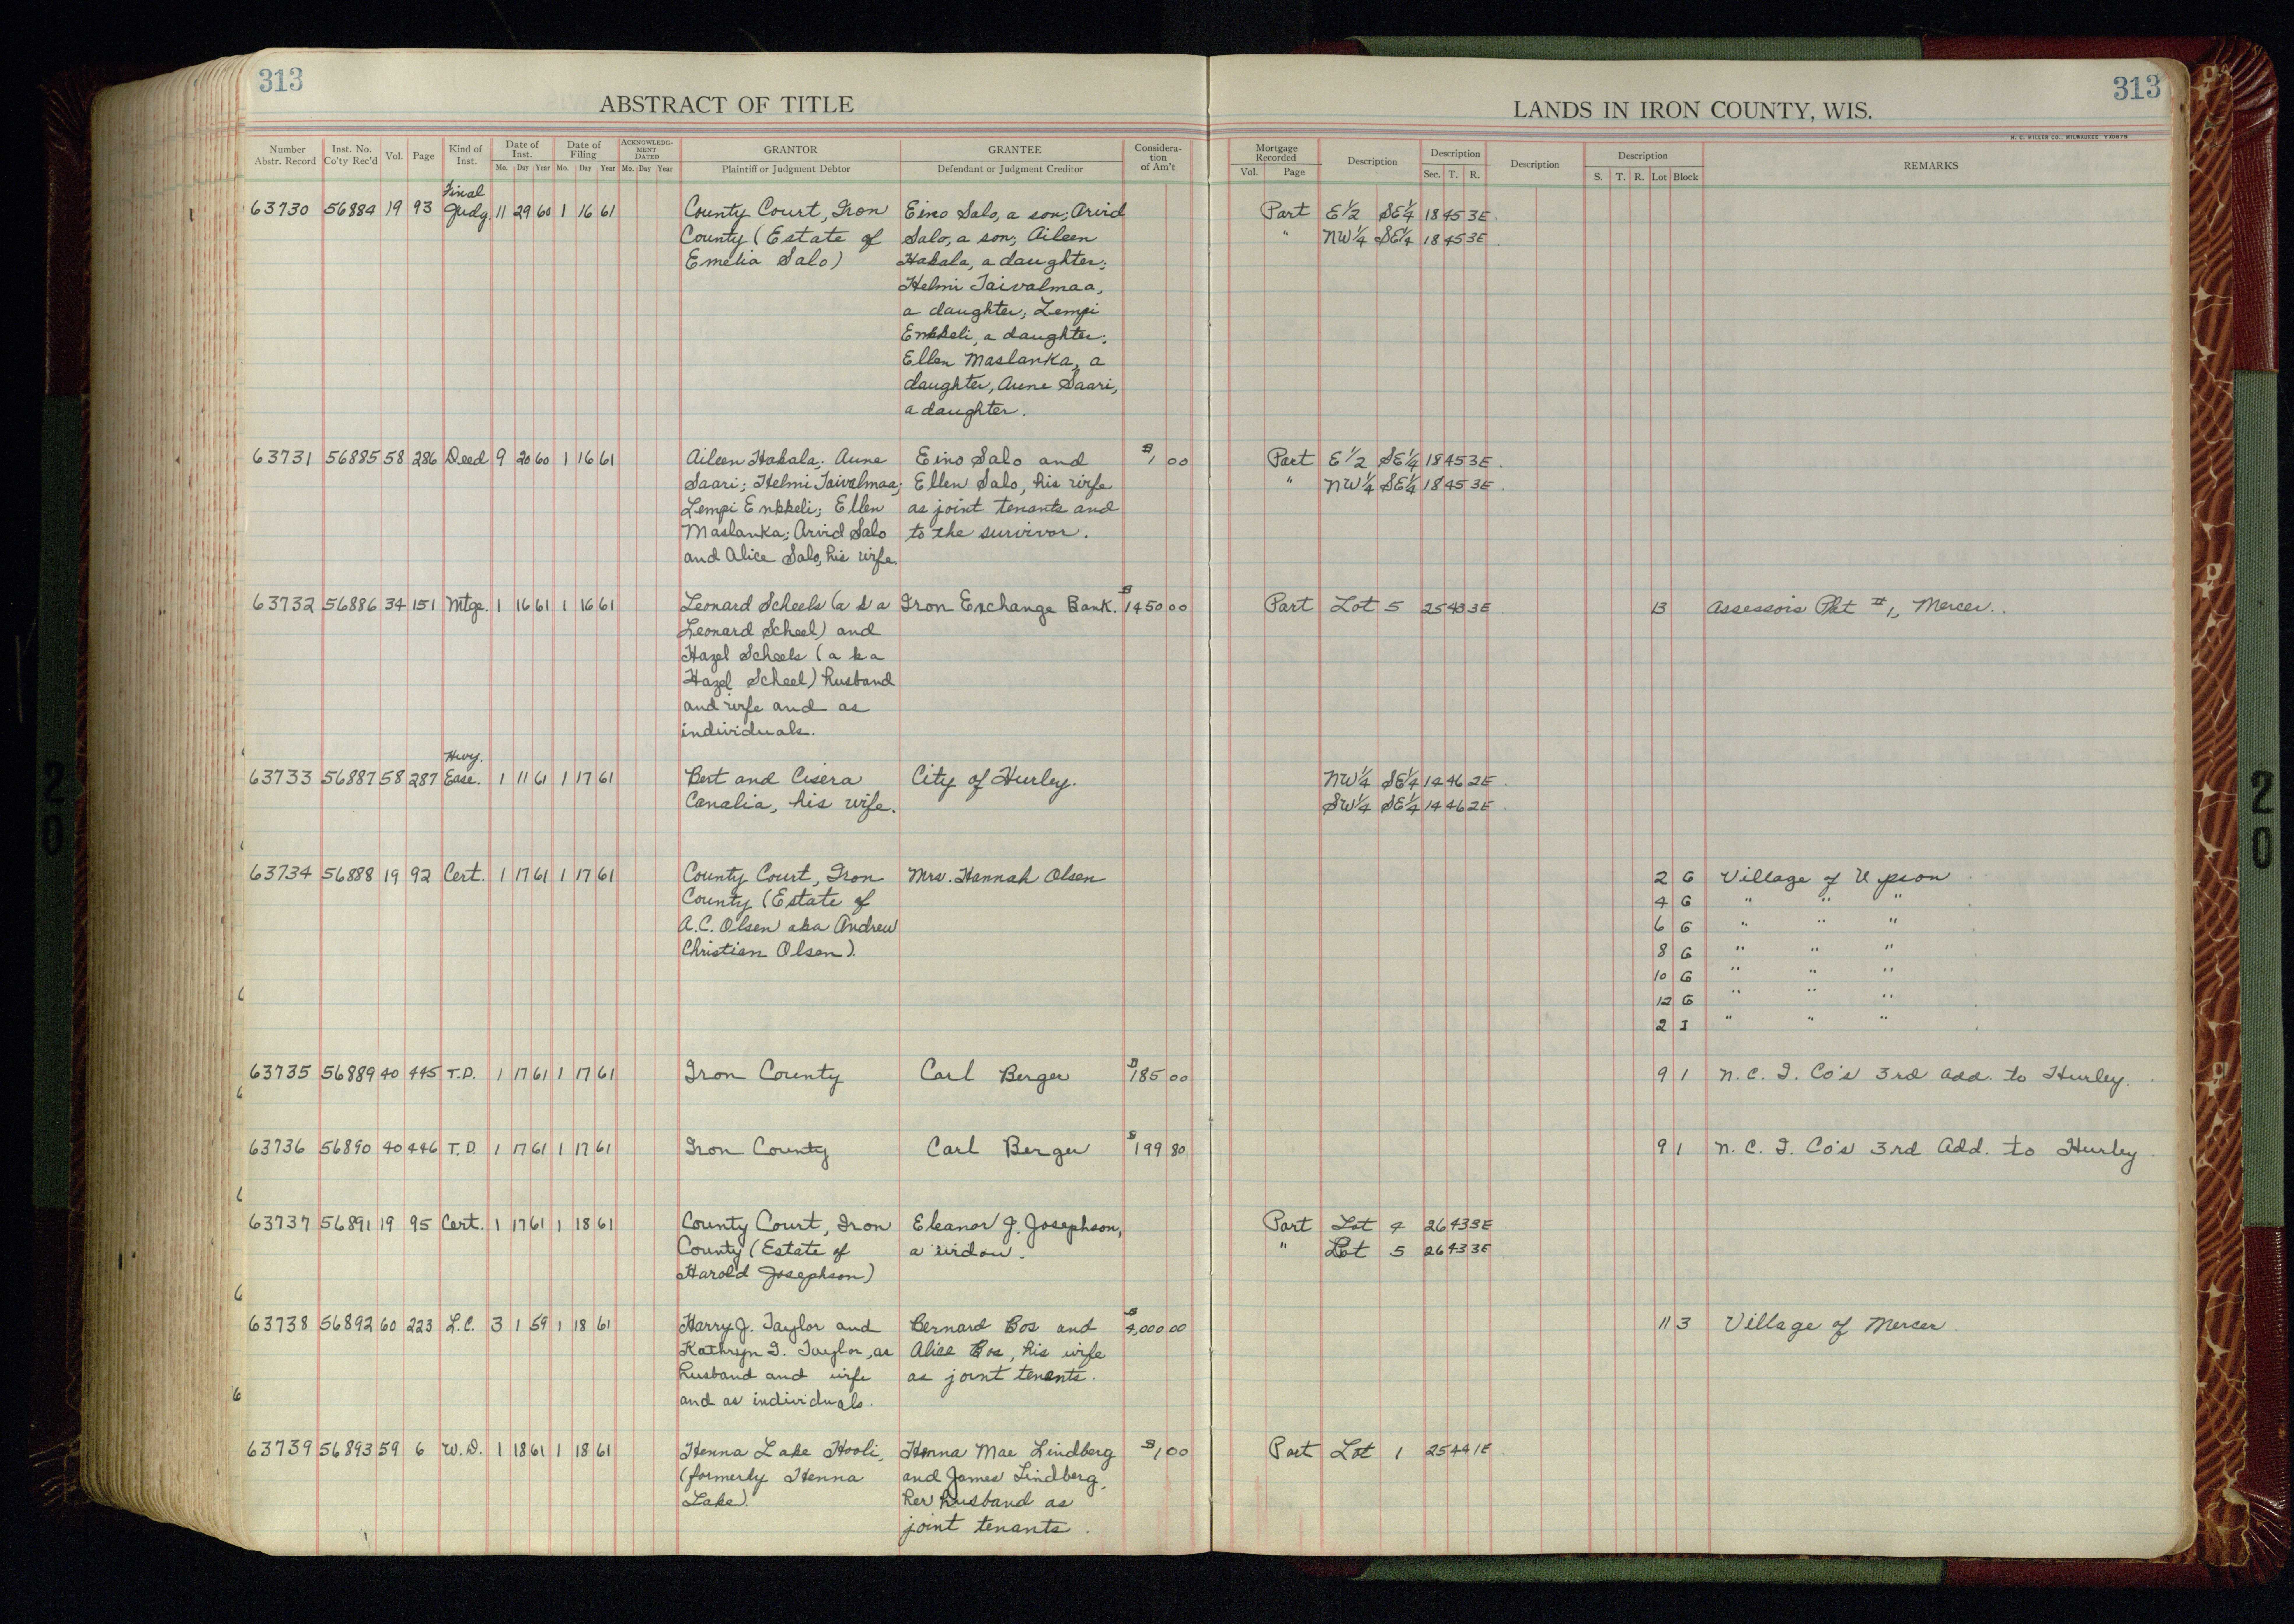 313
313
ABSTRACT OF TITLE
LANDS IN IRON COUNTY, WIS.
H. C. MILLER CO., MILWAUKEE
Number Abstr. Record Inst. No. Co'ty Rec'd Vol. Page Kind of Inst. Date of Inst. Mo. Day Year Date of Filing Mo. Day Year ACKNOWLEDGMENT DATED Mo. Day Year GRANTOR Plaintiff or Judgment Debtor GRANTEE Defendant or Judgment Creditor Consideration of Am't
Mortgage Recorded Vol. Page Description Description Sec. T. R. Description Description S. T. R. Lot Block REMARKS
Final
63730 56884 19 93 Judg. 11 29 60 1 16 61 County Court, Iron Eino Salo, a son; Arvid Part E 1/2 SE 1/4 18 45 3E.
County (Estate of Salo, a son; Aileen " NW 1/4 SE 1/4 18 45 3E.
Emelia Salo) Hakala, a daughter;
Helmi Taivalmaa,
a daughter; Lempi
Enkkeli, a daughter;
Ellen Maslanka, a
daughter, Aune Saari,
a daughter.
63731 56885 58 286 Deed 9 20 60 1 16 61 Aileen Hakala; Aune Eino Salo and $1 00 Part E 1/2 SE 1/4 18 45 3E.
Saari; Helmi Taivalmaa; Ellen Salo, his wife " NW 1/4 SE 1/4 18 45 3E.
Lempi Enkkeli; Ellen as joint tenants and
Maslanka; Arvid Salo to the survivor.
and Alice Salo, his wife.
63732 56886 34 151 Mtge. 1 16 61 1 16 61 Leonard Scheels (a k a Iron Exchange Bank. $1450 00 Part Lot 5 25 43 3E 13 Assessors Plat #1, Mercer.
Leonard Scheel) and
Hazel Scheels (a k a
Hazel Scheel) husband
and wife and as
individuals.
Hwy.
63733 56887 58 287 Ease. 1 11 61 1 17 61 Bert and Cisera City of Hurley. NW 1/4 SE 1/4 14 46 2E.
Canalia, his wife. SW 1/4 SE 1/4 14 46 2E.
63734 56888 19 92 Cert. 1 17 61 1 17 61 County Court, Iron Mrs. Hannah Olsen 2 G Village of Upson
County (Estate of 4 G " " "
A.C. Olsen aka Andrew 6 G " " "
Christian Olsen). 8 G " " "
10 G " " "
12 G " " "
2 I " " "
63735 56889 40 445 T.D. 1 17 61 1 17 61 Iron County Carl Berger $185 00 9 1 N. C. I. Co's 3rd Add. to Hurley.
63736 56890 40 446 T.D. 1 17 61 1 17 61 Iron County Carl Berger $199 80 9 1 N. C. I. Co's 3rd Add. to Hurley
63737 56891 19 95 Cert. 1 17 61 1 18 61 County Court, Iron Eleanor J. Josephson, Part Lot 4 26 43 3E
County (Estate of a widow. " Lot 5 26 43 3E
Harold Josephson)
63738 56892 60 223 L.C. 3 1 59 1 18 61 Harry J. Taylor and Bernard Bos and $4,000 00 11 3 Village of Mercer
Kathryn I. Taylor, as Alice Bos, his wife
husband and wife as joint tenants.
and as individuals.
63739 56893 59 6 W.D. 1 18 61 1 18 61 Henna Lake Hooli, Henna Mae Lindberg $1 00 Part Lot 1 25 44 1E
(formerly Henna and James Lindberg,
Lake). her husband as
joint tenants.
20
20